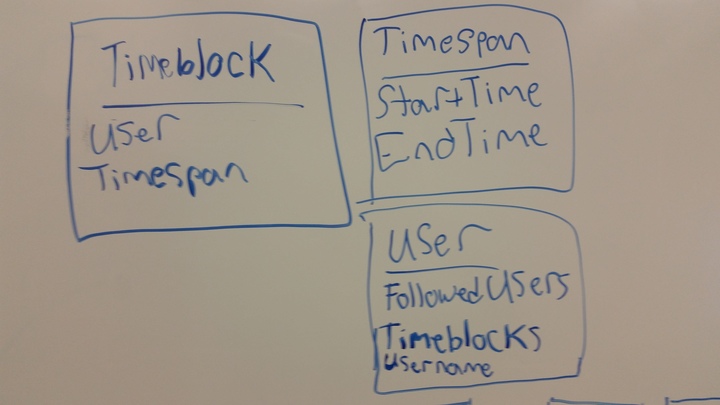 Timeblock
User
Timespan
Timespan
StartTime
EndTime
User
FollowedUsers
Timeblocks
username